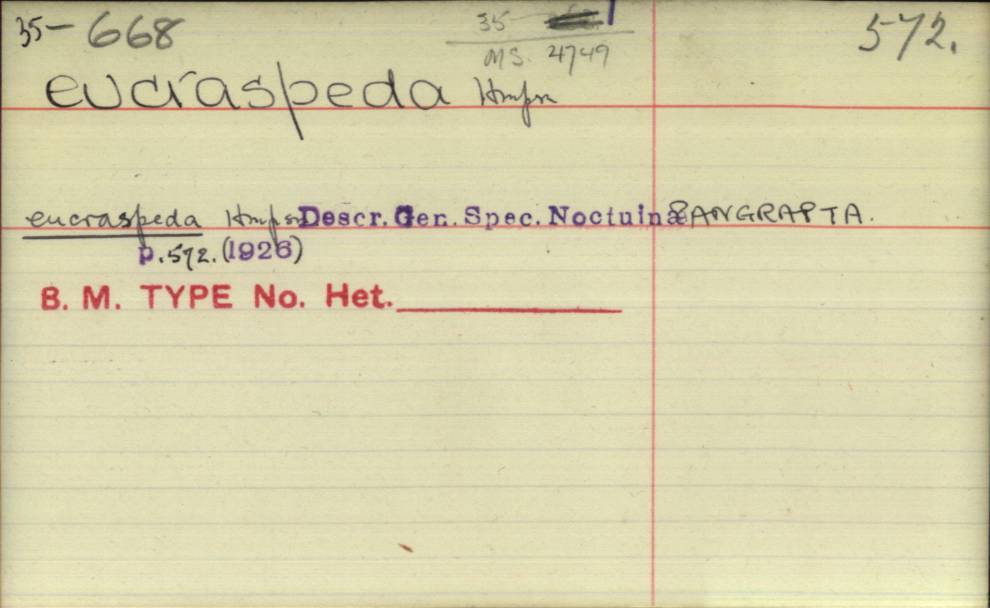 35-668
35-
MS. 4749
572.
eucraspeda Hmpsn
eucraspeda Hmpsn Descr. Gen. Spec. Noctuinæ PANGRAPTA.
p.572. (1926)
B. M. TYPE No. Het.